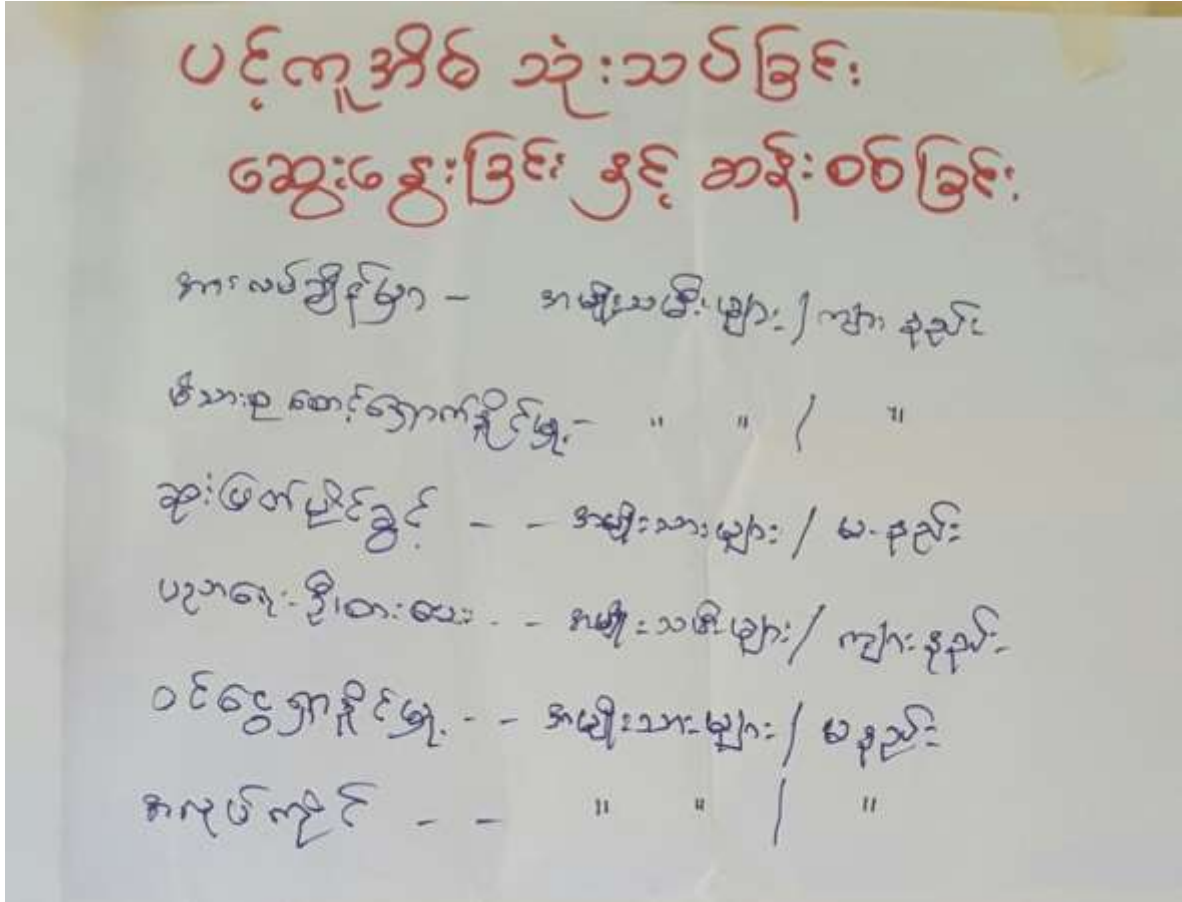 ပင့်ကူအိမ် သုံးသပ်ခြင်း
ဆွေးနွေးခြင်း နှင့် ဆန်းစစ်ခြင်း
အားလပ်ချိန်မှာ - အမျိုးသမီးများ / ကျား နည်း
မိသားစု စောင့်ရှောက်နိုင်မှု - " " / "
ဆုံးဖြတ်ပိုင်ခွင့် - - အမျိုးသားများ / မ - နည်း
ပညာရေး ဦးစားပေး - - အမျိုးသမီးများ / ကျား နည်း
ဝင်ငွေရှာနိုင်မှု - - အမျိုးသားများ / မ နည်း
အလုပ်ကိုင် - - " " / "